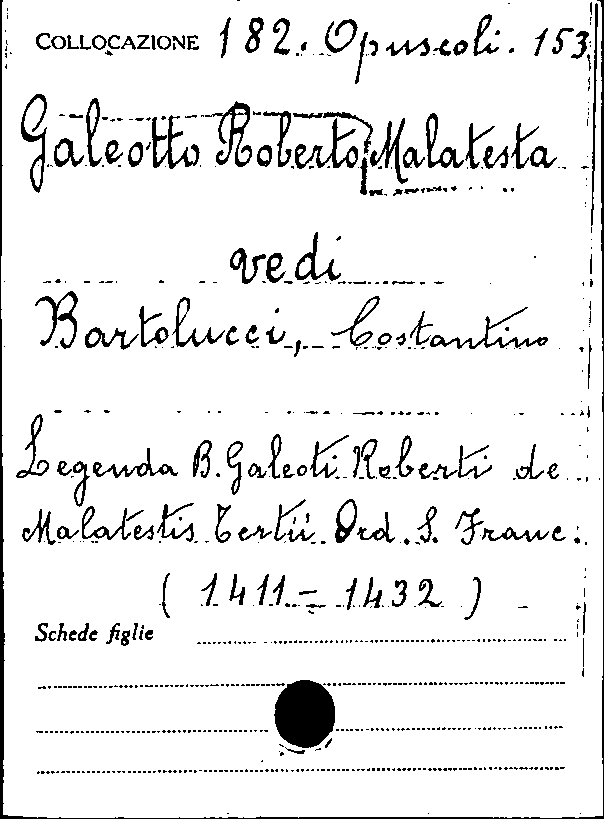 COLLOCAZIONE 182. Opuscoli. 153
Galeotto Roberto Malatesta
vedi
Bartolucci, Costantino
Legenda B. Galeoti Roberti de
Malatestis Tertii Ord. S. Franc.
( 1411 - 1432 )
Schede figlie